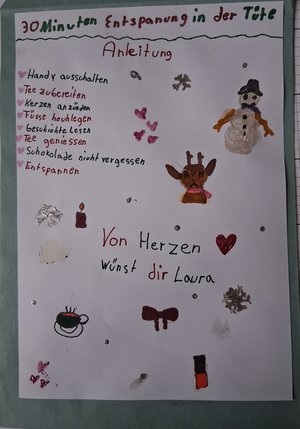 30 Minuten Entspanung in der Tüte
Anleitung
Handy ausschalten
Tee zubereiten
Kerzen anzünden
Füsse hochlegen
Geschichte Lesen
Tee geniessen
Schokolade nicht vergessen
Entspannen
Von Herzen
Wünst dir Laura